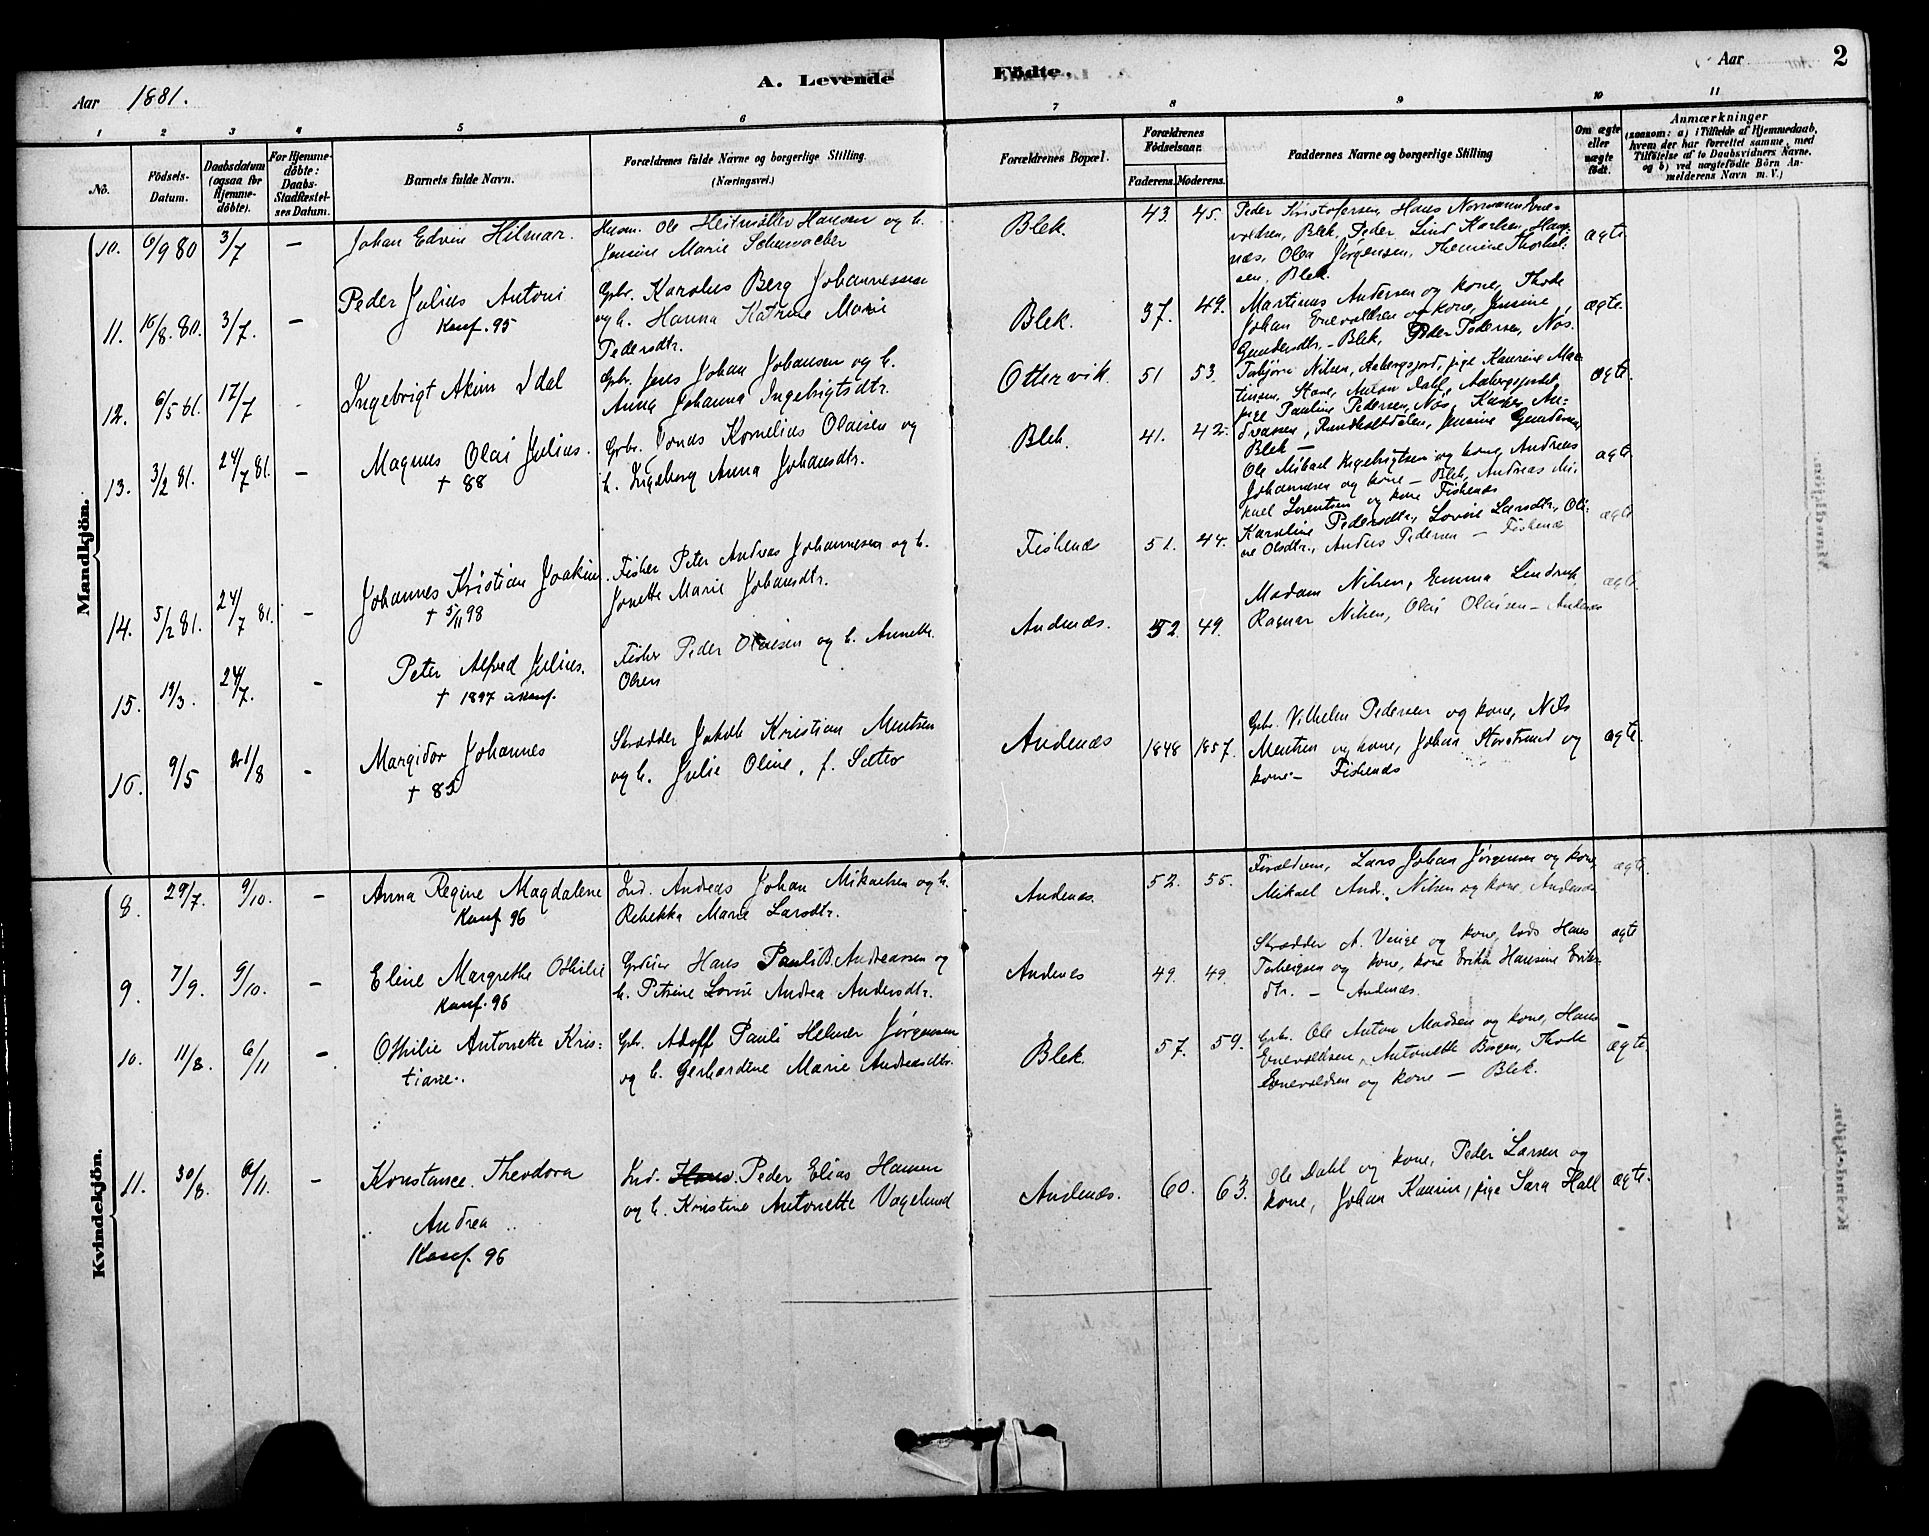 2
Aar 1881.
A. Levende Födte.
Aar
1 2 3 4 5 6 7 8 9 10 11
No.
Födsels-Datum.
Daabsdatum (ogsaa for Hjemme-döbte).
For Hjemme-döbte: Daabs-Stadfæstel-ses Datum.
Barnets fulde Navn.
Forældrenes fulde Navne og borgerlige Stilling. (Næringsvei.)
Forældrenes Bopæl.
Forældrenes Födselsaar.
Faderens. Moderens.
Faddernes Navne og borgerlige Stilling
Om ægte eller uægte födt.
Anmærkninger
(saasom: a) i Tilfælde af Hjemmedaab, hvem der har forrettet samme, med Tilföielse af to Daabsvidners Navne, og b) ved uægtefödte Börn An-melderens Navn m. V.)
Mandkjön.
10. 6/9 80 3/7 – Johan Edvin Hilmar.
Ole Heitmøller Hansen og h.
Jensine Marie Schumacher
Blek. 43. 45.
Peder Kristofersen, Hans Normann Ene-
voldsen, Blek, Peder Lind Karlsen, Haug-
næs, Olea Jørgensen, Themine Thorkel-
sen, Blek.
ægte
11. 16/8. 80. 3/7. – Peder Julius Antoni
Konf. 95
Gbr. Karolus Berg Johannessen
og h. Hanna Katrine Marie
Pedersdtr.
Blek. 37. 49.
Martinus Andersen og kone, Thode
Johan Enevoldsen og kone, Jensine
Gundersdtr. – Blek, Peder Pedersen, Nøs.
ægte.
12. 6/5 61. 17/7 Ingebrigt Akim Idel
Gbr. Jens Johan Johansen og h.
Anna Johanna Ingebrigtsdtr.
Ottervik. 51 53.
Torbjørn Nilsen, Aabergsjord, pige Kaurine Mar-
tinsen, Stave, Anton Dahl, Aabergsjordet,
pige Pauline Pedersen, Nøs, An-
dreasen, Rundholtdalen, Jensine Gundersen
Blek –
ægte.
13. 3/2 81. 24/7 81. – Magnus Olai Julius.
† 88
Gbr. Jonas Kornelius Olaisen og
h. Ingeborg Anna Johansdtr.
Blek. 41. 42.
Ole Mikael Ingebrigtsen og kone, Andreas
Johannesen og kone – Blek, Andreas Mi-
kael Lorentsen og kone Fiskenes
ægte.
14. 5/2 81. 24/7 81. – Johannes Kristian Joakim.
† 5/11 98
Fisker Peter Andreas Johannesen og h.
Jonette Marie Johansdtr.
Fiskenes 51. 44.
Karoline Pedersdtr., Lovise Larsdtr., Oli-
ne Olsdtr., Anders Pedersen – Fiskenes
ægte
15. 19/3. 24/7. – Peter Alfred Julius.
† 1897 ukonf.
Fisker Peder Olaisen og h. Annette
Olsen
Andenæs. 52. 49.
Madam Nilsen, Emma Lindrup,
Ragnar Nilsen, Olai Olaisen – Andenæs
ægte.
16. 9/5 21/8 – Margidor Johannes
† 82
Skrædder Jakob Kristian Mentsen
og h. Julie Oline, f. Sæter
Andenæs 1848 1857.
Gbr. Vilhelm Pedersen og kone, Nils
Mentsen og kone, Johan Storstrand og
kone – Fiskenes
ægte.
Kvindekjön.
8. 29/7. 9/10. – Anna Regine Magdalene
Konf 96
Ind. Andreas Johan Mikaelsen og h.
Rebekka Marie Larsdtr.
Andenæs. 52. 55.
Forældrene, Lars Johan Jørgensen og kone,
Mikael Andr. Nilsen og kone, Andenæs
ægte.
9. 7/9. 9/10. – Eline Margrethe Othilie
Konf. 96
Hans Pauli B. Andreassen og
h. Petrine Lovise Andrea Andersdtr.
Andenes 49. 49.
Skrædder A. Vinge og kone, lods Hans
Torbergsen og kone, kone Erika Hansine Erik-
dtr. – Andenæs.
ægte
10. 11/8. 6/11 – Othilie Antonette Kris-
tiane.
Gbr. Adolf Pauli Helmer Jørgensen
og h. Gerhardine Marie Andreasdtr.
Blek. 57. 59.
Gbr. Ole Anton Madsen og kone, Hans
Enevoldsen, Antonette Borgen, Thode
Enevoldsen og kone – Blek.
ægte.
11. 30/8. 6/11. – Konstance Theodora
Andrea
Konf. 96
Ind. Hans. Peder Elias Hansen
og h. Kristine Antonette Vagelund
Andenæs. 60. 63.
Ole Dahl og kone, Peder Larsen og
kone, Johan Kaurin, pige Sara Hall
ægte.